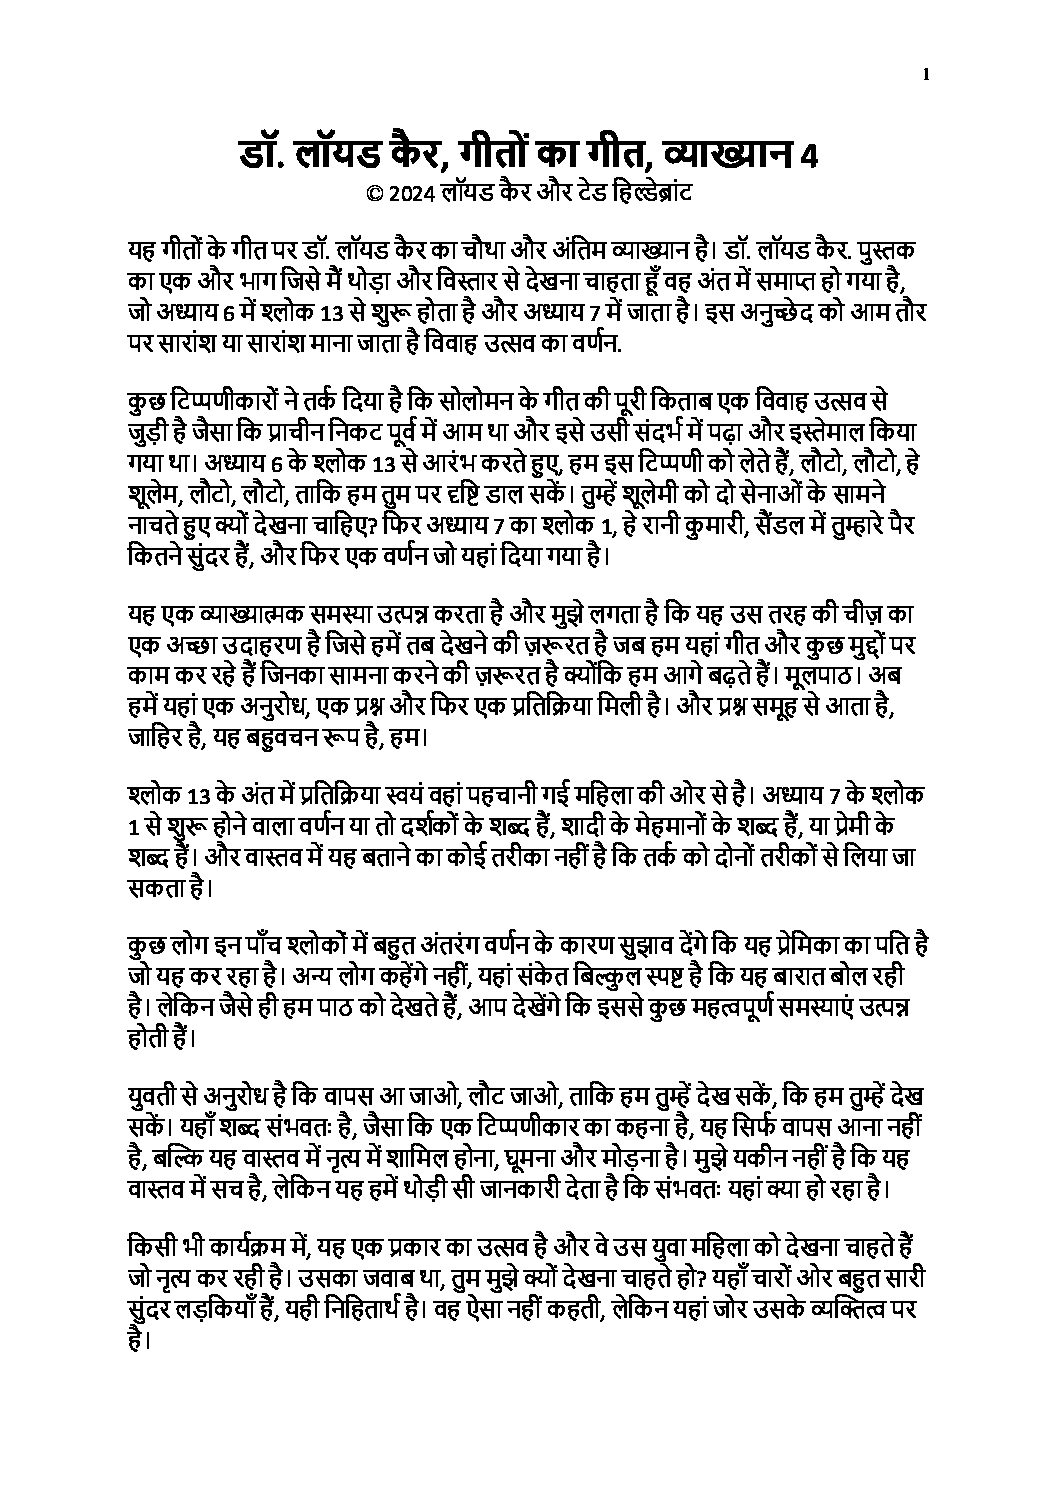 1
डॉ. लॉयड कैर, गीतों का गीत, व्याख्यान 4
© 2024 लॉयड कैर और टेड हिल्डेब्रांट
यह गीतों के गीत पर डॉ. लॉयड कैर का चौथा और अंतिम व्याख्यान है। डॉ. लॉयड कैर. पुस्तक
का एक और भाग जिसे मैं थोड़ा और विस्तार से देखना चाहता हूँ वह अंत में समाप्त हो गया है,
जो अध्याय 6 में श्लोक 13 से शुरू होता है और अध्याय 7 में जाता है। इस अनुच्छेद को आम तौर
पर सारांश या सारांश माना जाता है विवाह उत्सव का वर्णन.
कुछ टिप्पणीकारों ने तर्क दिया है कि सोलोमन के गीत की पूरी किताब एक विवाह उत्सव से
जुड़ी है जैसा कि प्राचीन निकट पूर्व में आम था और इसे उसी संदर्भ में पढ़ा और इस्तेमाल किया
गया था। अध्याय 6 के श्लोक 13 से आरंभ करते हुए, हम इस टिप्पणी को लेते हैं, लौटो, लौटो, हे
शूलेम, लौटो, लौटो, ताकि हम तुम पर दृष्टि डाल सकें। तुम्हें शूलेमी को दो सेनाओं के सामने
नाचते हुए क्यों देखना चाहिए? फिर अध्याय 7 का श्लोक 1, हे रानी कुमारी, सैंडल में तुम्हारे पैर
कितने सुंदर हैं, और फिर एक वर्णन जो यहां दिया गया है।
यह एक व्याख्यात्मक समस्या उत्पन्न करता है और मुझे लगता है कि यह उस तरह की चीज़ का
एक अच्छा उदाहरण है जिसे हमें तब देखने की ज़रूरत है जब हम यहां गीत और कुछ मुद्दों पर
काम कर रहे हैं जिनका सामना करने की ज़रूरत है क्योंकि हम आगे बढ़ते हैं। मूलपाठ। अब
हमें यहां एक अनुरोध, एक प्रश्न और फिर एक प्रतिक्रिया मिली है। और प्रश्न समूह से आता है,
जाहिर है, यह बहुवचन रूप है, हम।
श्लोक 13 के अंत में प्रतिक्रिया स्वयं वहां पहचानी गई महिला की ओर से है। अध्याय 7 के श्लोक
1 से शुरू होने वाला वर्णन या तो दर्शकों के शब्द हैं, शादी के मेहमानों के शब्द हैं, या प्रेमी के
शब्द हैं। और वास्तव में यह बताने का कोई तरीका नहीं है कि तर्क को दोनों तरीकों से लिया जा
सकता है।
कुछ लोग इन पाँच श्लोकों में बहुत अंतरंग वर्णन के कारण सुझाव देंगे कि यह प्रेमिका का पति है
जो यह कर रहा है। अन्य लोग कहेंगे नहीं, यहां संकेत बिल्कुल स्पष्ट है कि यह बारात बोल रही
है। लेकिन जैसे ही हम पाठ को देखते हैं, आप देखेंगे कि इससे कुछ महत्वपूर्ण समस्याएं उत्पन्न
होती हैं।
युवती से अनुरोध है कि वापस आ जाओ, लौट जाओ, ताकि हम तुम्हें देख सकें, कि हम तुम्हें देख
सकें। यहाँ शब्द संभवतः है, जैसा कि एक टिप्पणीकार का कहना है, यह सिर्फ वापस आना नहीं
है, बल्कि यह वास्तव में नृत्य में शामिल होना, घूमना और मोड़ना है। मुझे यकीन नहीं है कि यह
वास्तव में सच है, लेकिन यह हमें थोड़ी सी जानकारी देता है कि संभवतः यहां क्या हो रहा है।
किसी भी कार्यक्रम में, यह एक प्रकार का उत्सव है और वे उस युवा महिला को देखना चाहते हैं
जो नृत्य कर रही है। उसका जवाब था, तुम मुझे क्यों देखना चाहते हो? यहाँ चारों ओर बहुत सारी
सुंदर लड़कियाँ हैं, यही निहितार्थ है। वह ऐसा नहीं कहती, लेकिन यहां जोर उसके व्यक्तित्व पर
है।